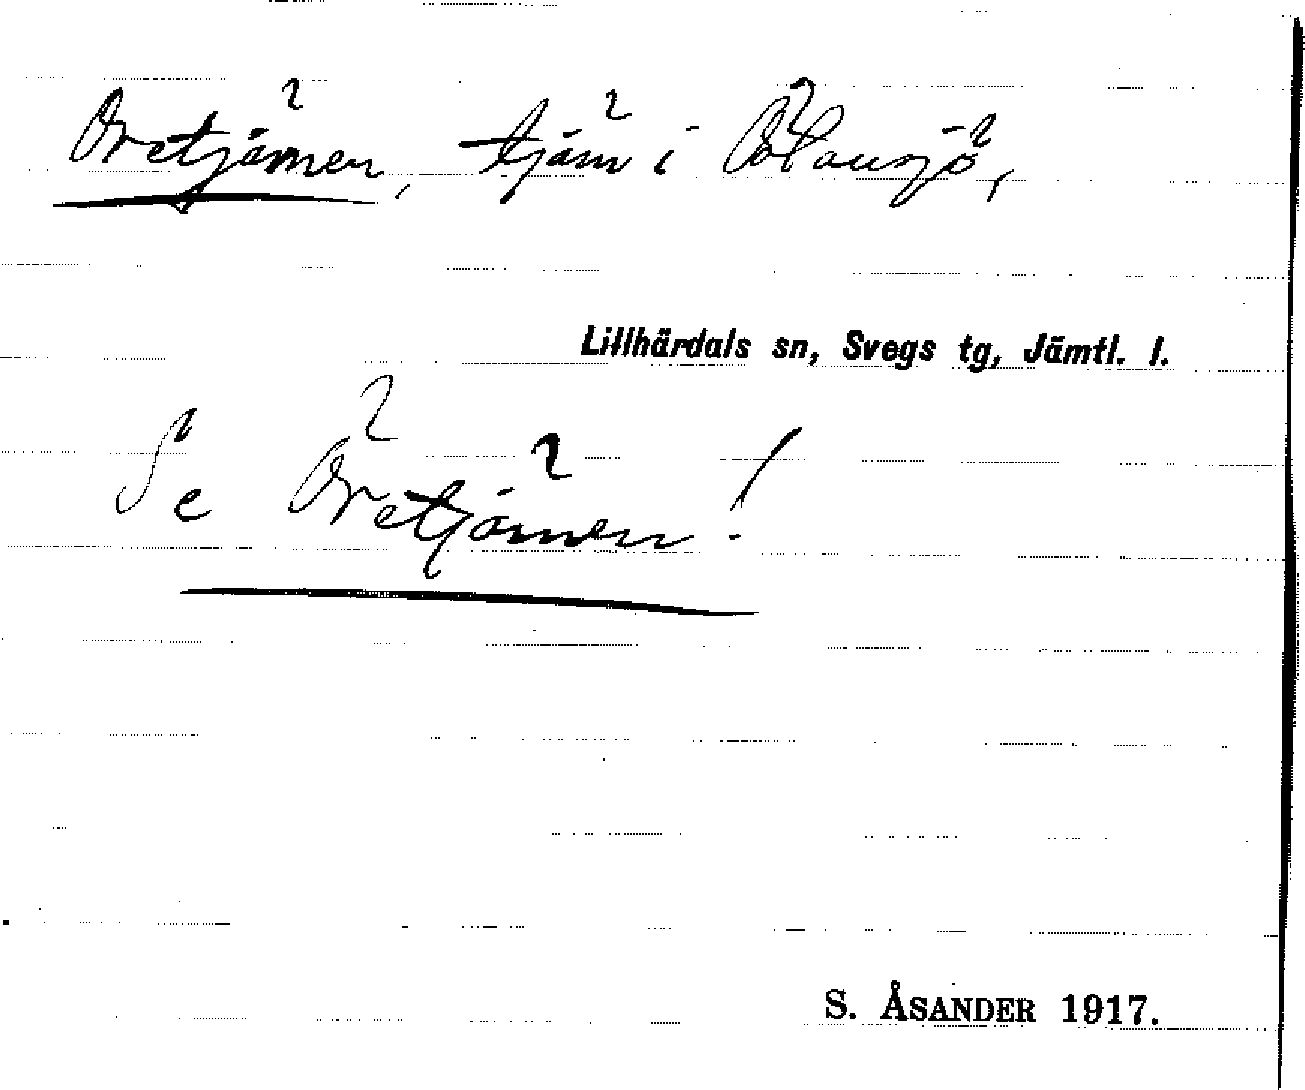 Oretjärnen, tjärn i
Lillhärdals sn, Svegs tg, Jämtl. l.
Se Öretjärnen!
S. ÅSANDER 1917.